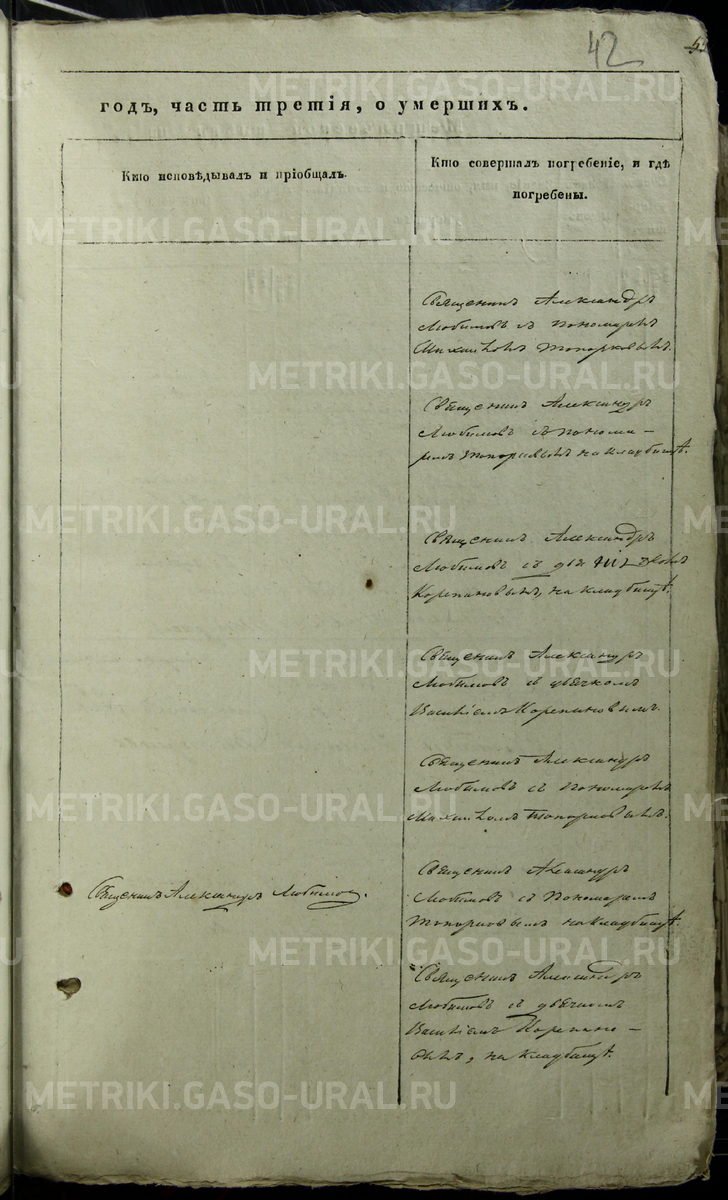 42
годъ, часть третія, о умершихъ.
Кто исповѣдывалъ и пріобщалъ.
Кто совершалъ погребеніе, и гдѣ
погребены.
Священникъ Александръ
Любимовъ съ пономаремъ
Михаиломъ Топорковымъ.
Священникъ Александръ
Любимовъ съ понома-
ремъ на кладбищѣ.
Священникъ Александръ
Любимовъ съ
на кладбищѣ.
Священникъ Александръ
Любимовъ съ дьячкомъ
Василіемъ Корепановымъ.
Священникъ Александръ
Любимовъ съ пономаремъ
Михаиломъ Топорковымъ.
Священникъ Александръ Любимовъ.
Священникъ Александръ
Любимовъ съ пономаремъ
Топорковымъ на кладбищѣ.
Священникъ Александръ
Любимовъ съ дьячкомъ
Василіемъ Корепано-
вымъ, на кладбищѣ.
METRIKI.GASO-URAL.RU